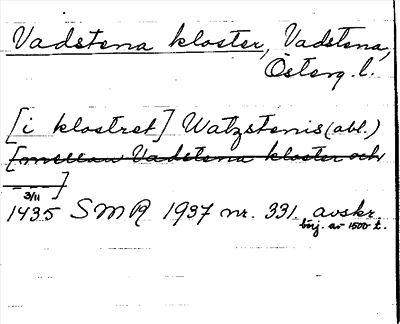 Vadstena kloster, Vadstena,
Österg. l.
[i klostret] Watzstenis (abl.)
[mellan Vadstena kloster och
——]
3/11
1435 SMR 1937 nr. 331. avskr.
börj. av 1500 t.